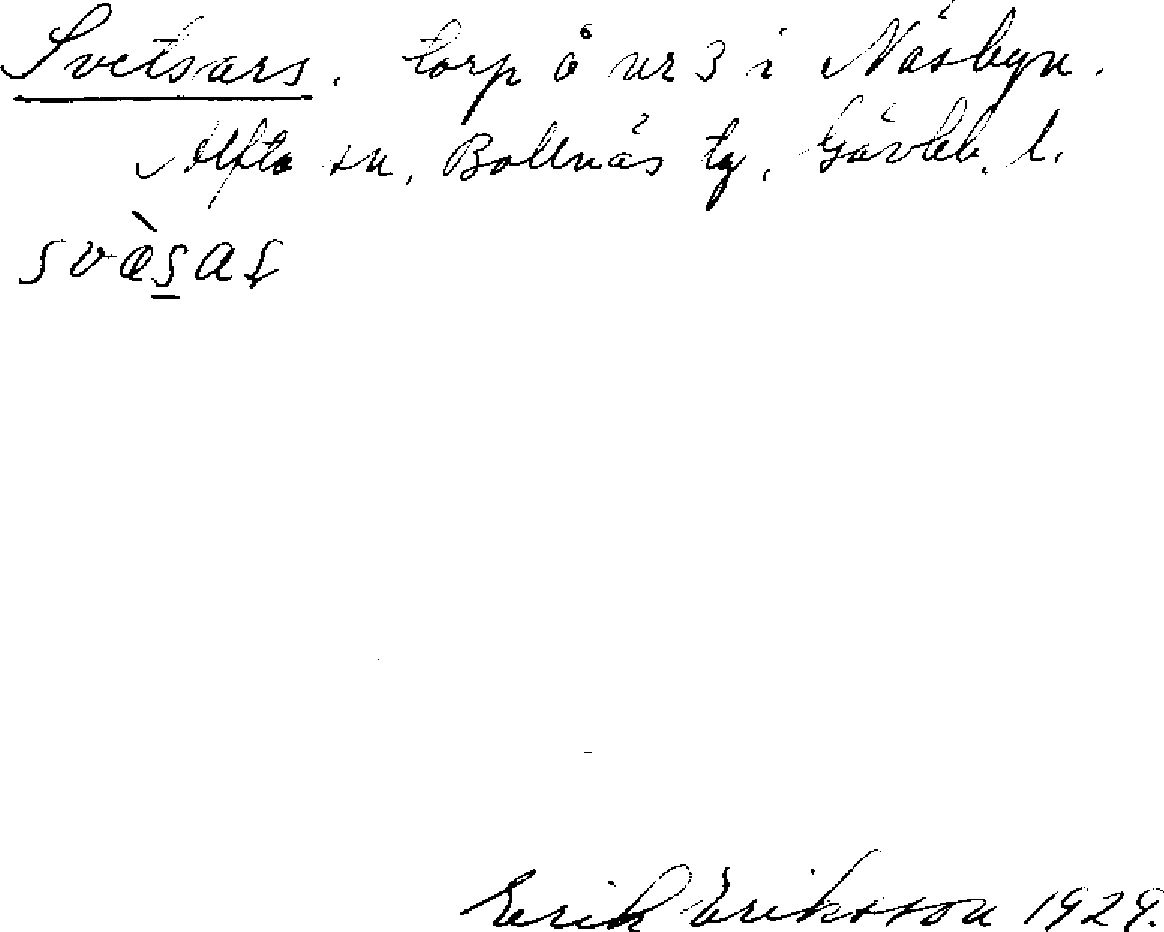 Svetsars. torp å nr 3 i Näsbyn.
Alfta sn, Bollnäs tg, Gävleb. l.
svæ̀s̠aʂ
Erik Eriksson 1929.